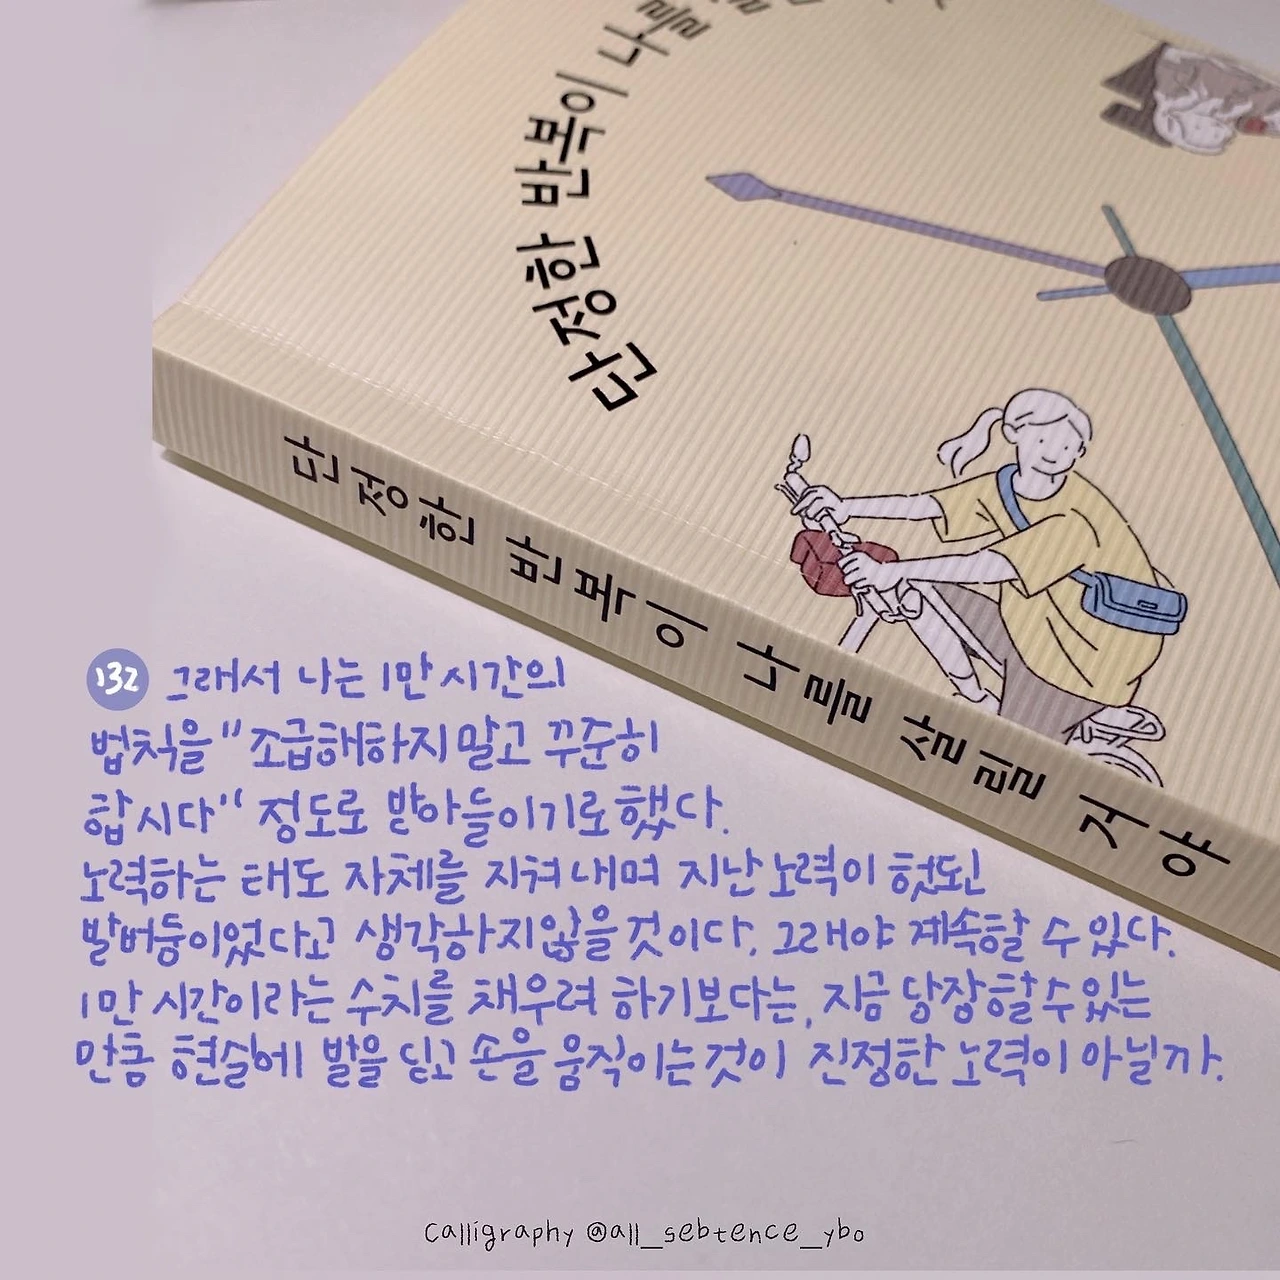 단정한 반복이 나를
단정한 반복이 나를 살릴 거야
132 그래서 나는 1만 시간의
법칙을 "조급해하지 말고 꾸준히
합시다" 정도로 받아들이기로 했다.
노력하는 태도 자체를 지켜내며 지난 노력이 헛된
발버둥이었다고 생각하지않을 것이다. 그래야 계속할 수 있다.
1만 시간이라는 수치를 채우려 하기보다는, 지금 당장 할 수 있는
만큼 현실에 발을 딛고 손을 움직이는 것이 진정한 노력이 아닐까.
Calligraphy @all_sebtence_ybo